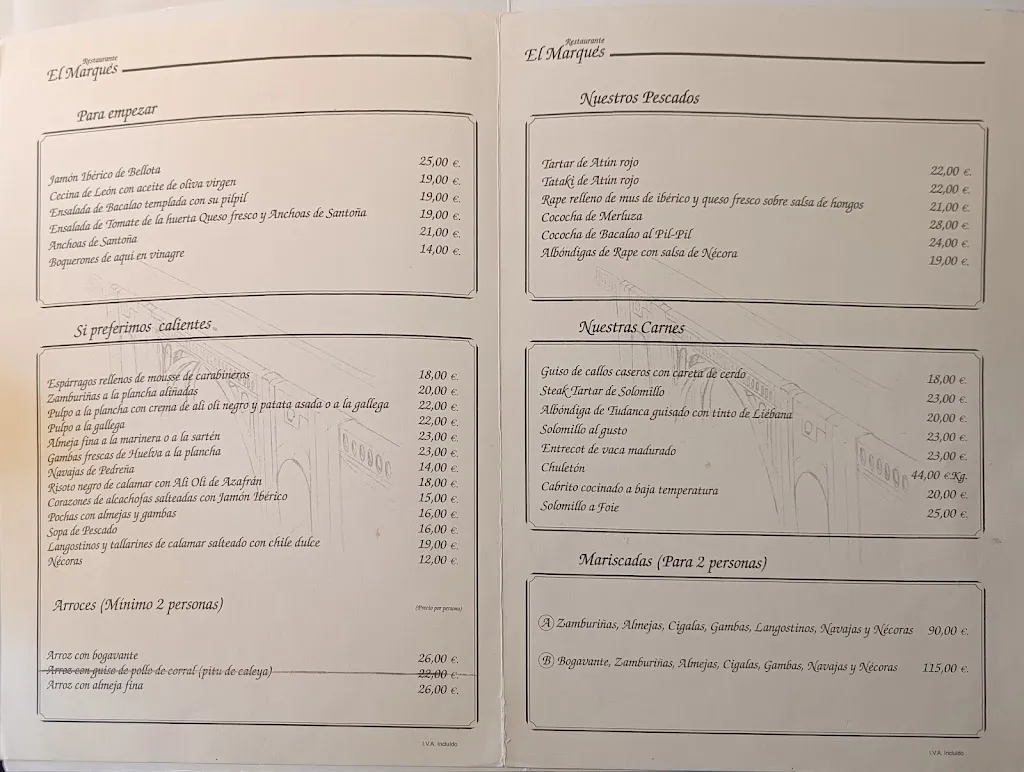 Restaurante
El Marqués
Para empezar
Jamón Ibérico de Bellota 25,00 €.
Cecina de León con aceite de oliva virgen 19,00 €.
Ensalada de Bacalao templada con su pilpil 19,00 €.
Ensalada de Tomate de la huerta Queso fresco y Anchoas de Santoña 19,00 €.
Anchoas de Santoña 21,00 €.
Boquerones de aqui en vinagre 14,00 €.
Si preferimos calientes
Espárragos rellenos de mousse de carabineros 18,00 €.
Zamburiñas a la plancha aliñadas 20,00 €.
Pulpo a la plancha con crema de ali oli negro y patata asada o a la gallega 22,00 €.
Pulpo a la gallega 22,00 €.
Almeja fina a la marinera o a la sartén 23,00 €.
Gambas frescas de Huelva a la plancha 23,00 €.
Navajas de Pedreña 14,00 €.
Risoto negro de calamar con Ali Oli de Azafrán 18,00 €.
Corazones de alcachofas salteadas con Jamón Ibérico 15,00 €.
Pochas con almejas y gambas 16,00 €.
Sopa de Pescado 16,00 €.
Langostinos y tallarines de calamar salteado con chile dulce 19,00 €.
Nécoras 12,00 €.
Arroces (Mínimo 2 personas) (Precio por persona)
Arroz con bogavante 26,00 €.
Arroz con guiso de pollo de corral (pitu de caleya) 22,00 €.
Arroz con almeja fina 26,00 €.
I.V.A. Incluído
Restaurante
El Marqués
Nuestros Pescados
Tartar de Atún rojo 22,00 €.
Tataki de Atún rojo 22,00 €.
Rape relleno de mus de ibérico y queso fresco sobre salsa de hongos 21,00 €.
Cococha de Merluza 28,00 €.
Cococha de Bacalao al Pil-Pil 24,00 €.
Albóndigas de Rape con salsa de Nécora 19,00 €.
Nuestras Carnes
Guiso de callos caseros con careta de cerdo 18,00 €.
Steak Tartar de Solomillo 23,00 €.
Albóndiga de Tudanca guisado con tinto de Liébana 20,00 €.
Solomillo al gusto 23,00 €.
Entrecot de vaca madurado 23,00 €.
Chuletón 44,00 €.Kg.
Cabrito cocinado a baja temperatura 20,00 €.
Solomillo a Foie 25,00 €.
Mariscadas (Para 2 personas)
A Zamburiñas, Almejas, Cigalas, Gambas, Langostinos, Navajas y Nécoras 90,00 €.
B Bogavante, Zamburiñas, Almejas, Cigalas, Gambas, Navajas y Nécoras 115,00 €.
I.V.A. Incluído